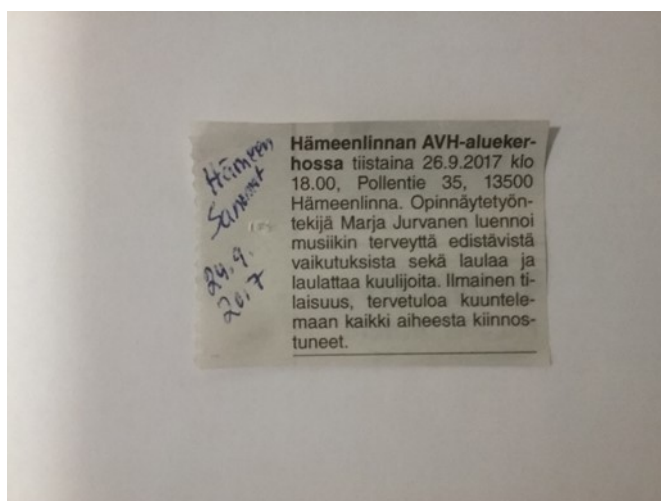 Hämeen
Sanomat
24.9.
2017
Hämeenlinnan AVH-alueker-
hossa tiistaina 26.9.2017 klo
18.00, Pollentie 35, 13500
Hämeenlinna. Opinnäytetyön-
tekijä Marja Jurvanen luennoi
musiikin terveyttä edistävistä
vaikutuksista sekä laulaa ja
laulattaa kuulijoita. Ilmainen ti-
laisuus, tervetuloa kuuntele-
maan kaikki aiheesta kiinnos-
tuneet.